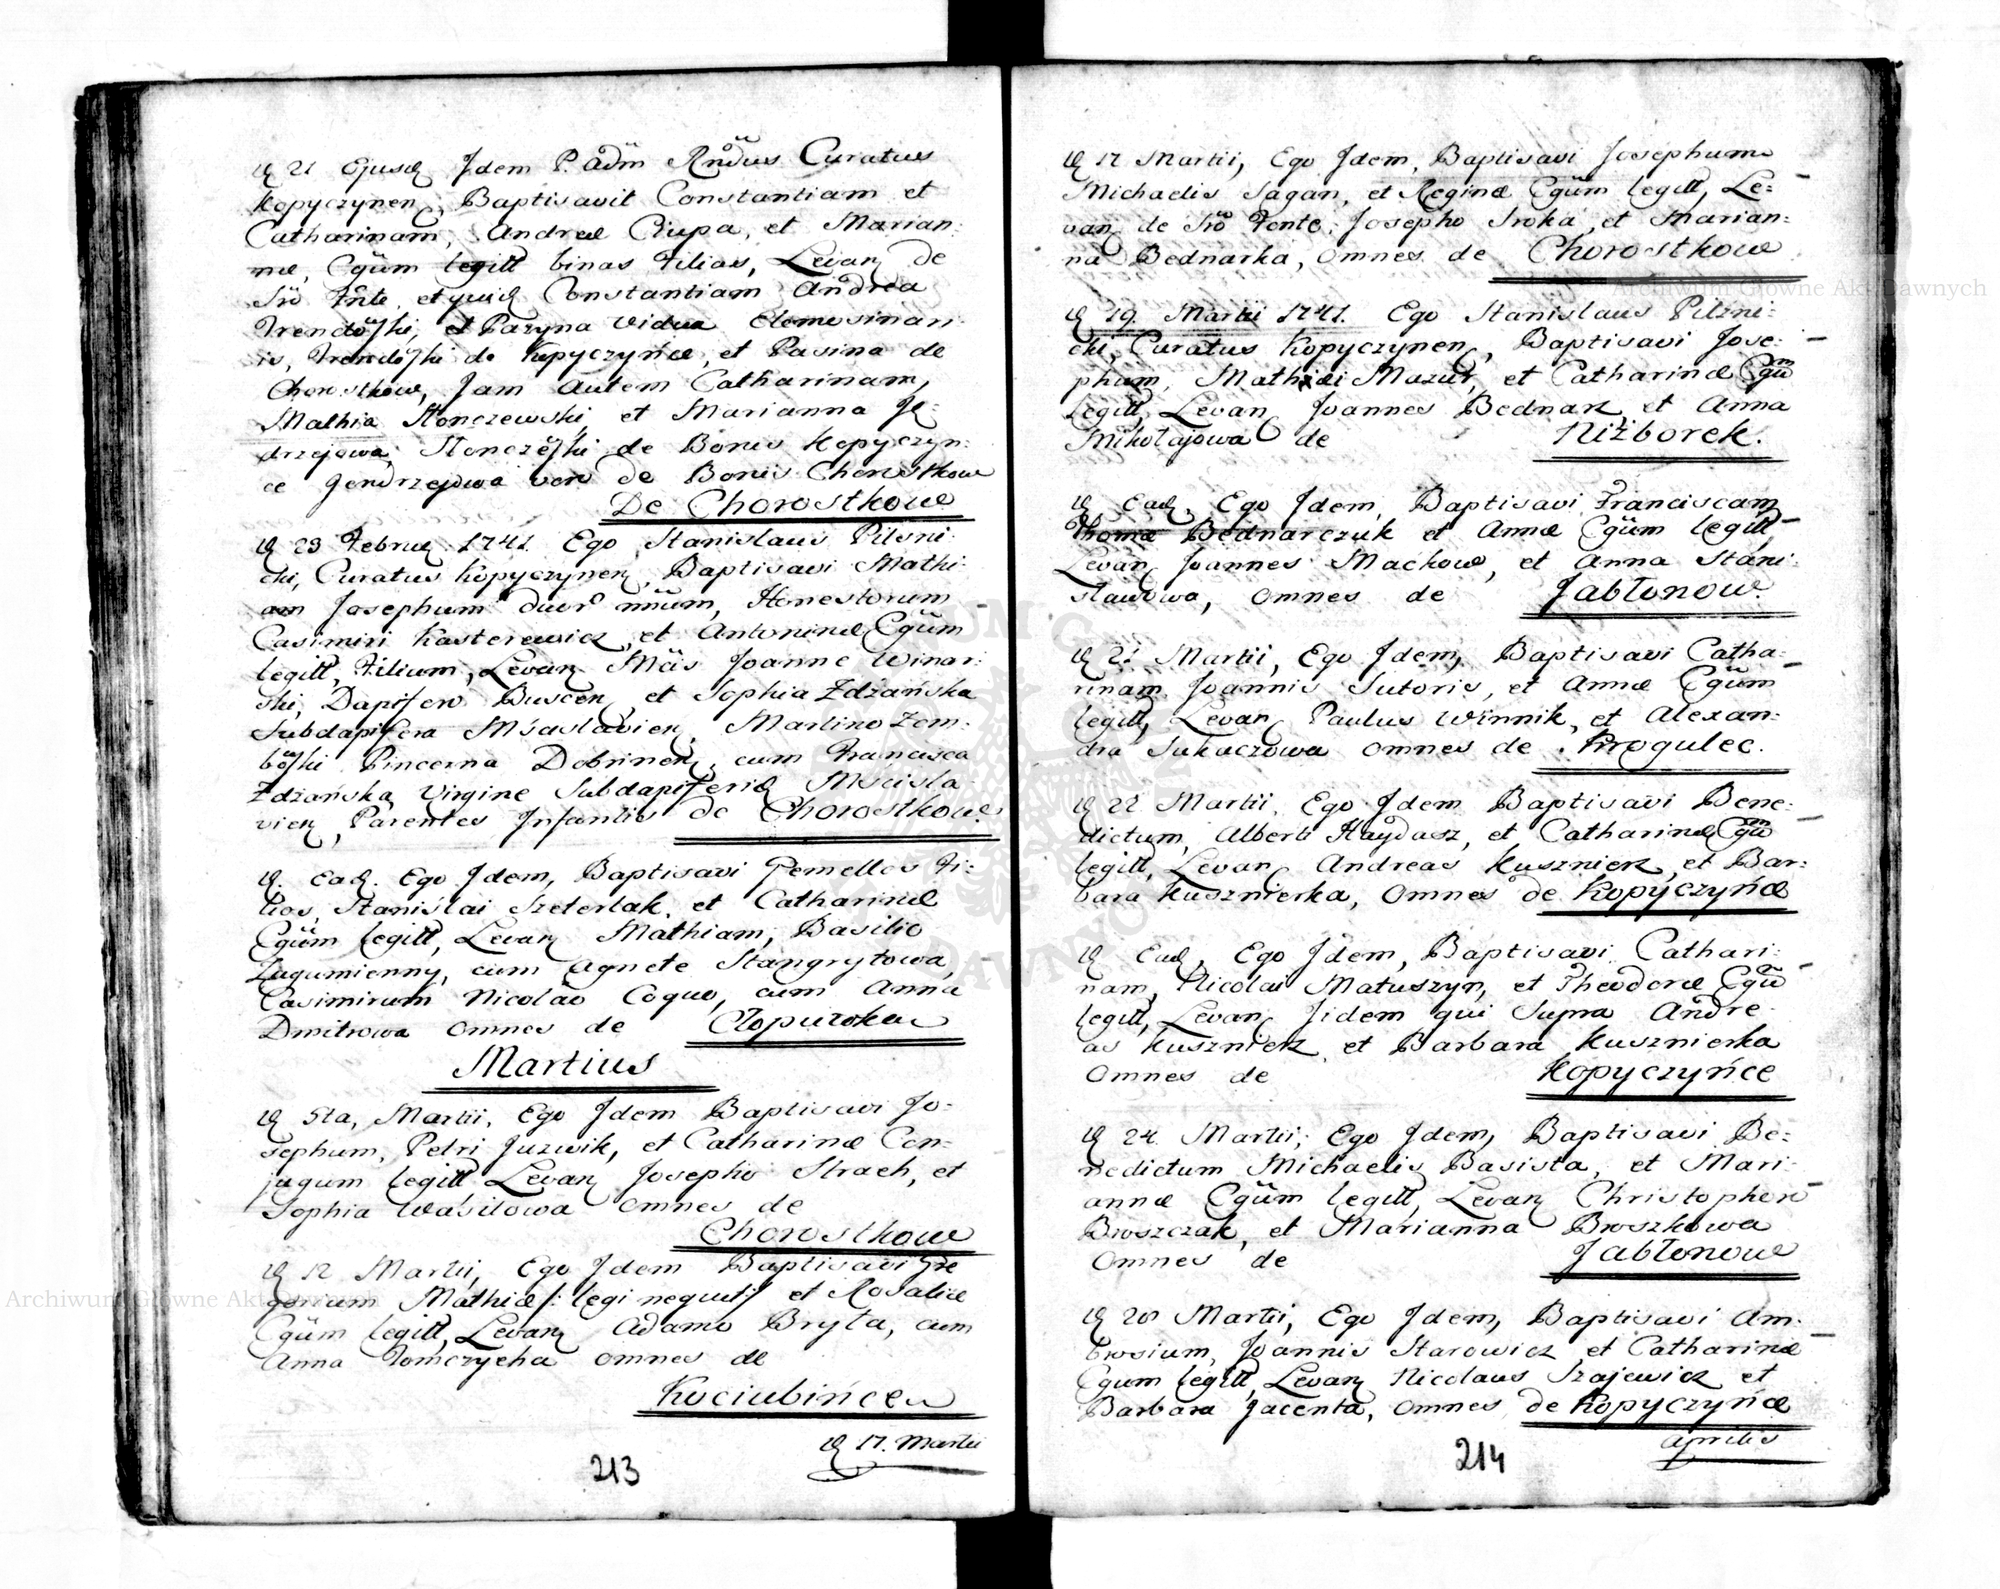 D 21 Ejusd Idem P. Adm Rndus Curatus
Kopyczynen, Baptisavit Constantiam et
Catharinam, Andreæ Ciupa, et Marian:
næ, Cgüm legitt binas Filias, Levan de
Sro Fnte, et quid Constantiam Andrea
et Paryna Vidua Elemosinari:
is, de Kopyczyńce, et Pasina de
Chorostków, Jam autem Catharinam,
Mathia Stonczewski, et Marianna Ję:
drzejowa, de Bonis Kopyczyn:
ce Jendrzejowa vero de Bonis Chorostkow
De Chorostkow
D 23 Februa 1741. Ego Stanislaus Pilzni:
cki, Curatus Kopyczynen, Baptisavi Mathi:
am Josephum duor nnüm, Honestorum
Casimiri Kasterewicz, et Antoninæ Cgüm
legitt, Filium, Levan Joanne Winar:
ski, Dapifero Buscen, et Sophia Zdzańska
Subdapifera Mścislavien, Martino Zem:
Pincerna Dobrinen, cum Francisca
Zdzańska Virgine Subdapiferid Mścisla:
vien, Parentes Infantis de Chorostkow.
D. Ead. Ego Idem, Baptisavi Gemellos Fi:
lios, Stanislai Szeterlak, et Catharinæ
Cgüm legitt, Levan Mathiam, Basilio
Zagumienny, cum Agnete Stangrytowa,
Casimirum Nicolao Coquo, cum Anna
Dmitrowa omnes de Kłoputoka
Martius
D 5ta, Martii, Ego Idem Baptisavi Jo:
sephum, Petri Juzwik, et Catharinæ Con:
jugum legitt Levan Josepho Strach, et
Sophia Wasilowa omnes de
Chorostkow
D 12 Martii, Ego Idem Baptisavi Gre
gorium Mathiæ /: legi nequit :/ et Rosaliæ
Cgüm legitt, Levan Adamo Bryła, cum
Anna Tomczycha omnes de
Kociubińce
D 17. Martii
213
D 17 Martii, Ego Idem, Baptisavi Josephum
Michaelis Sagan, et Reginæ Cgüm legitt, Le:
van de Sro Fonte, Josepho Sroka, et Marian:
na Bednarka, omnes de Chorostkow
D 19. Martii 1741. Ego Stanislaus Pilzni:
cki, Curatus Kopyczynen, Baptisavi Jose:
phum, Mathiæ Mazur, et Catharinæ Cgüm
legitt, Levan Joannes Bednarz, et Anna
Mikołajowa de Niżborek.
D Ead, Ego Idem, Baptisavi Franciscam
Thomæ Bednarczuk et Annæ Cgüm legitt,
Levan Joannes Maćkow, et Anna Stani:
sławowa, omnes de Jabłonow.
D 21 Martii, Ego Idem, Baptisavi Catha:
rinam, Joannis Sutoris, et Annæ Cgüm
legitt, Levan Paulus Winnik, et Alexan:
dra Sukaczowa omnes de Krogulec.
D 22 Martii, Ego Idem Baptisavi Bene:
dictum, Alberti Haydasz, et Catharinæ Cgüm
legitt, Levan Andreas Kusznierz, et Bar:
bara Kusznierka, omnes de Kopyczyńce
D Ead, Ego Idem, Baptisavi Cathari:
nam, Nicolai Matuszyn, et Theodoræ Cgüm
legitt, Levan Iidem qui Supra Andre:
as Kusznierz et Barbara Kusznierka
omnes de Kopyczyńce
D 24. Martii, Ego Idem, Baptisavi Be:
nedictum Michaelis Basista, et Mari:
annæ Cgüm legitt, Levan Christophoro
Broszczak, et Marianna Broszkowa
omnes de Jabłonow
D 28 Martii, Ego Idem, Baptisavi Am:
brosium, Joannis Starowicz et Catharinæ
Cgum legitt, Levan Nicolaus Szajewicz et
Barbara Jacenta, omnes de Kopyczyńce
Aprilis
214
Archiwum Główne Akt Dawnych
Archiwum Główne Akt Dawnych